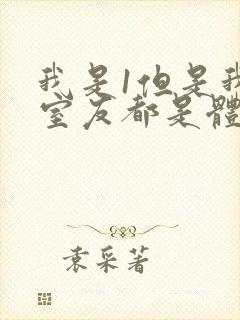 我是1但是我
室友都是體
袁采著